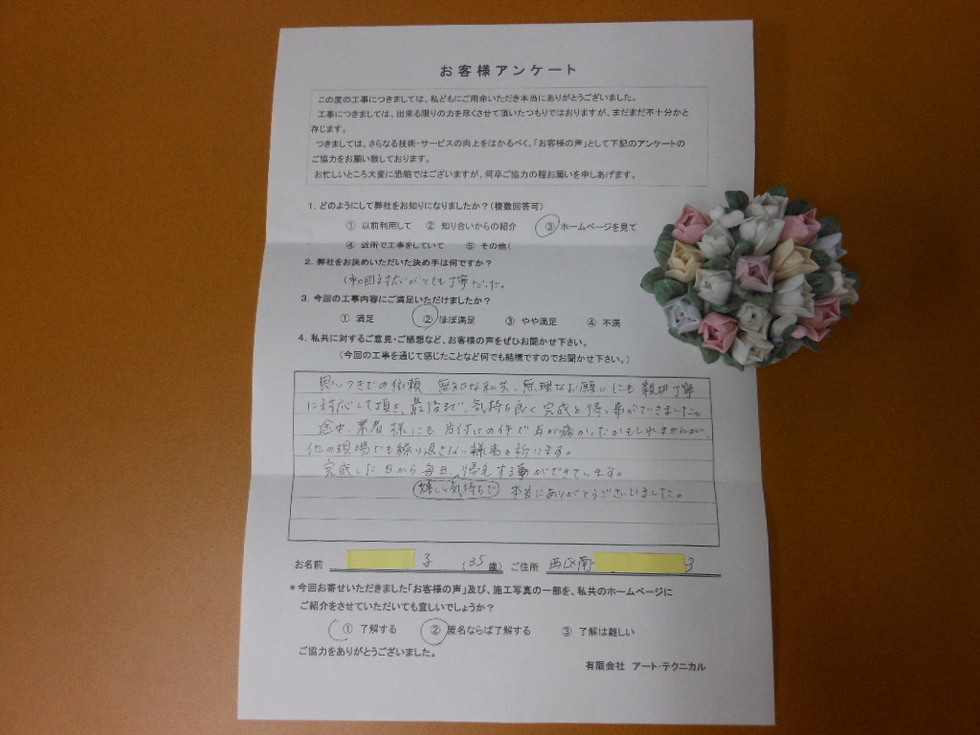 お客様アンケート
この度の工事につきましては、私どもにご用命いただき本当にありがとうございました。
工事につきましては、出来る限りの力を尽くさせて頂いたつもりではおりますが、まだまだ不十分かと
存じます。
つきましては、さらなる技術・サービスの向上をはかるべく、「お客様の声」として下記のアンケートの
ご協力をお願い致しております。
お忙しいところ大変に恐縮ではございますが、何卒ご協力の程お願いを申しあげます。
1. どのようにして弊社をお知りになりましたか?(複数回答可)
① 以前利用して ② 知り合いからの紹介 ③ ホームページを見て
④ 近所で工事をしていて ⑤ その他(
2. 弊社をお決めいただいた決め手は何ですか?
初回対応がとても丁寧だった。
3. 今回の工事内容にご満足いただけましたか?
① 満足 ② ほぼ満足 ③ やや満足 ④ 不満
4. 私共に対するご意見・ご感想など、お客様の声をぜひお聞かせ下さい。
(今回の工事を通じて感じたことなど何でも結構ですのでお聞かせ下さい。)
思いつきでの依頼、無知な私共、無理なお願いにも親切丁寧
に対応して頂き、最後まで、気持ち良く完成を待つ事ができました。
途中、業者様にも片付けの件で耳が痛かったかもしれませんが、
他の現場でも繰り返さない様にと祈ります。
完成した日から毎日、帰宅する事ができています。
嬉しい気持ちで 本当にありがとうございました。
お名前 子 (35歳) ご住所 西区南 3
*今回お寄せいただきました「お客様の声」及び、施工写真の一部を、私共のホームページに
ご紹介をさせていただいても宜しいでしょうか?
① 了解する ② 匿名ならば了解する ③ 了解は難しい
ご協力をありがとうございました。
有限会社 アート・テクニカル